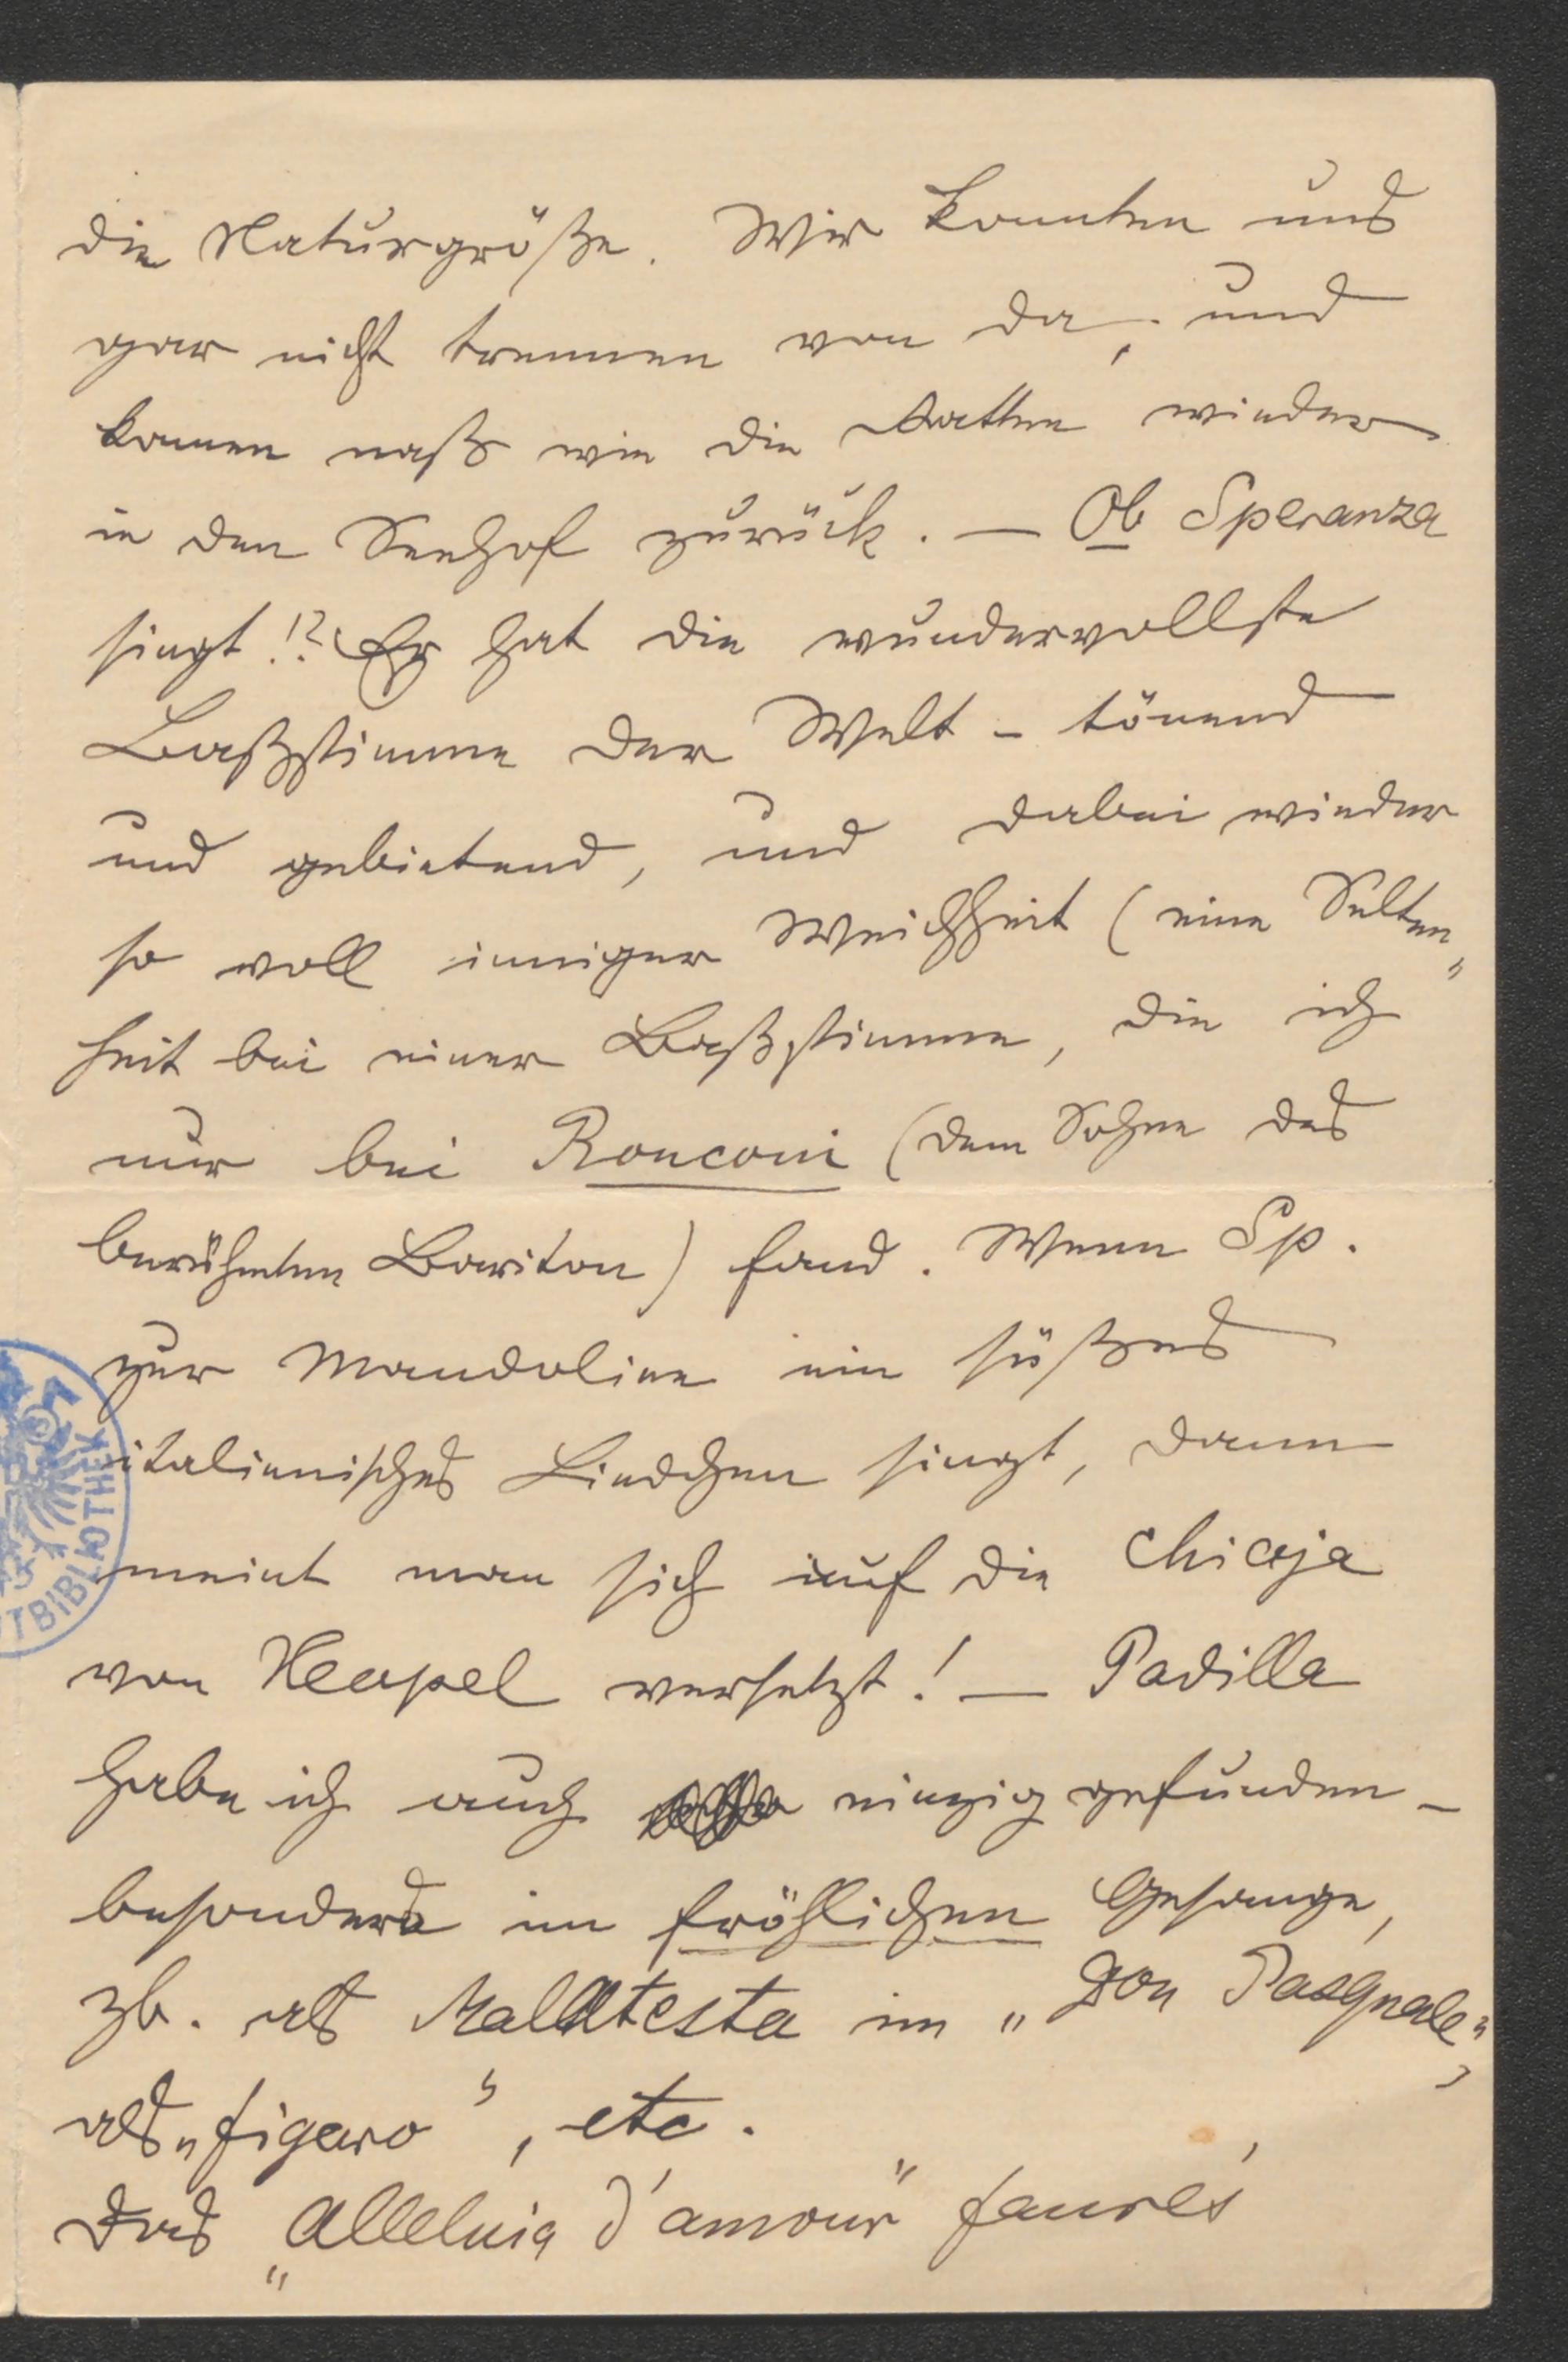 die Naturgröße. Wir konnten uns
gar nicht trennen von da, und
kamen naß wie die Ratten wieder
in den Seehof zurück. — Ob Speranza
singt!? Er hat die wundervollste
Baßstimme der Welt – tönend
und gebietend, und dabei wieder
so voll inniger Weichheit (eine Selten„
heit bei einer Baßstimme, die ich
nur bei Ronconi (dem Sohne des
berühmten Bariton) fand. Wenn Sp.
zur Mandoline ein süßes
italienisches Liedchen singt, dann
meint man sich auf die Chiaja
von Neapel versetzt! — Padilla
habe ich auch einzig gefunden –
besonders im fröhlichen Gesange,
zb. als Malatesta im „Don Pasquale",
als „Figaro", etc.
Das „Alleluia d'amour" Faure's
TBIBLIOTHEK